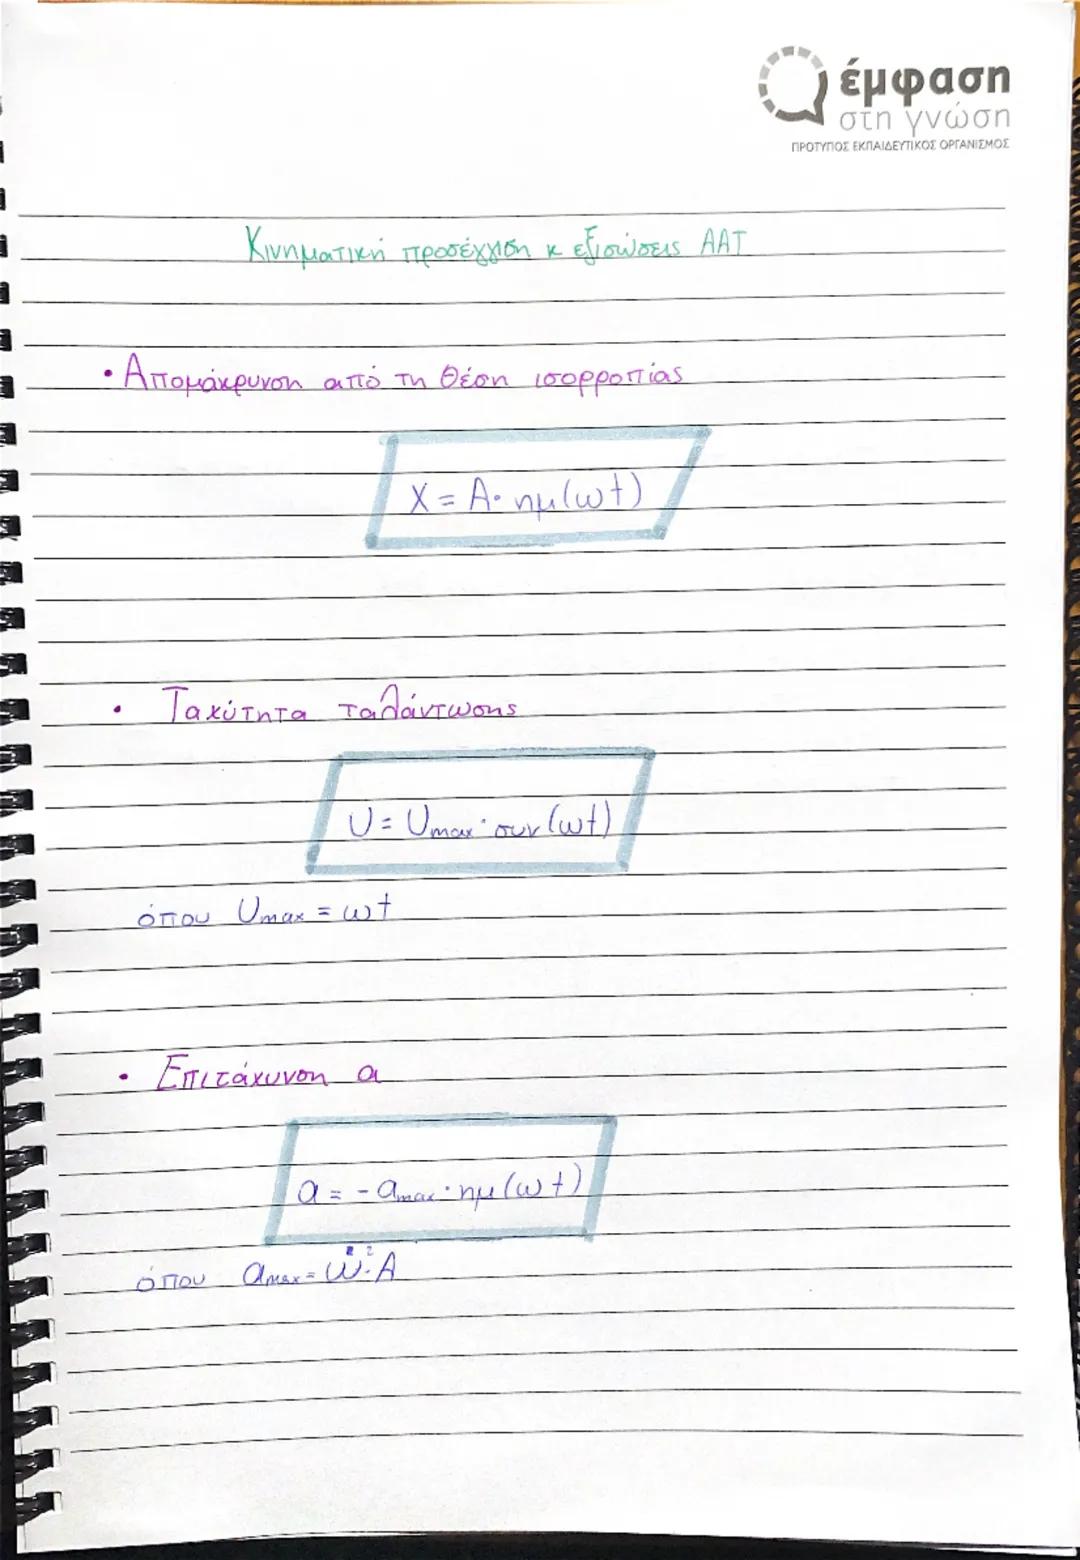 έμφαση
στη γνώση
ΠΡΟΤΥΠΟΣ ΕΚΠΑΙΔΕΥΤΙΚΟΣ ΟΡΓΑΝΙΣΜΟΣ
Κινηματική προσέγγιση κ εξισώσεις ΑΑΤ
• Απομάκρυνση από τη θέση ισορροπίας
x = A· ημ(ωt)
• Ταχύτητα ταλάντωσης
υ = υmax · συν(ωt)
όπου υmax = ωt
• Επιτάχυνση α
α = - αmax · ημ(ωt)
όπου αmax = ω²·A